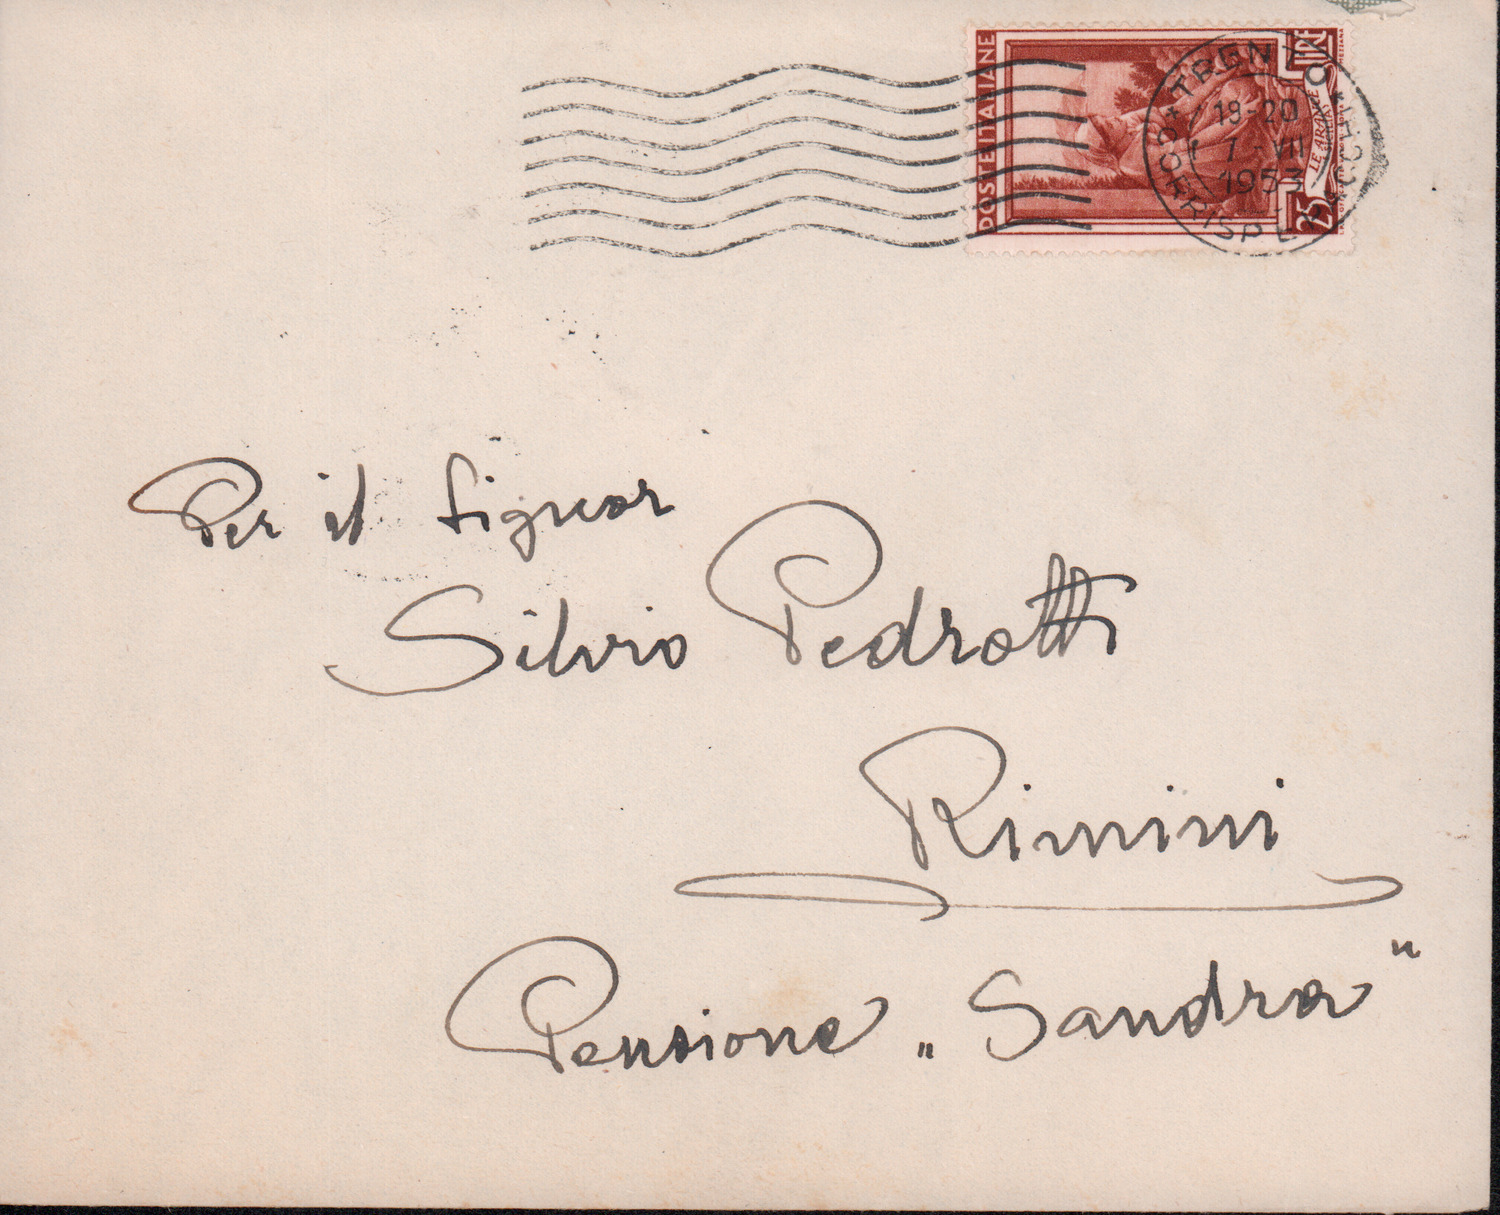 POSTE ITALIANE
LIRE
25
LE ARANCE
TRENTO
CORRISP
19-20
7-VII
1953
Per il Signor
Silvio Pedrotti
Rimini
Pensione „Sandra"